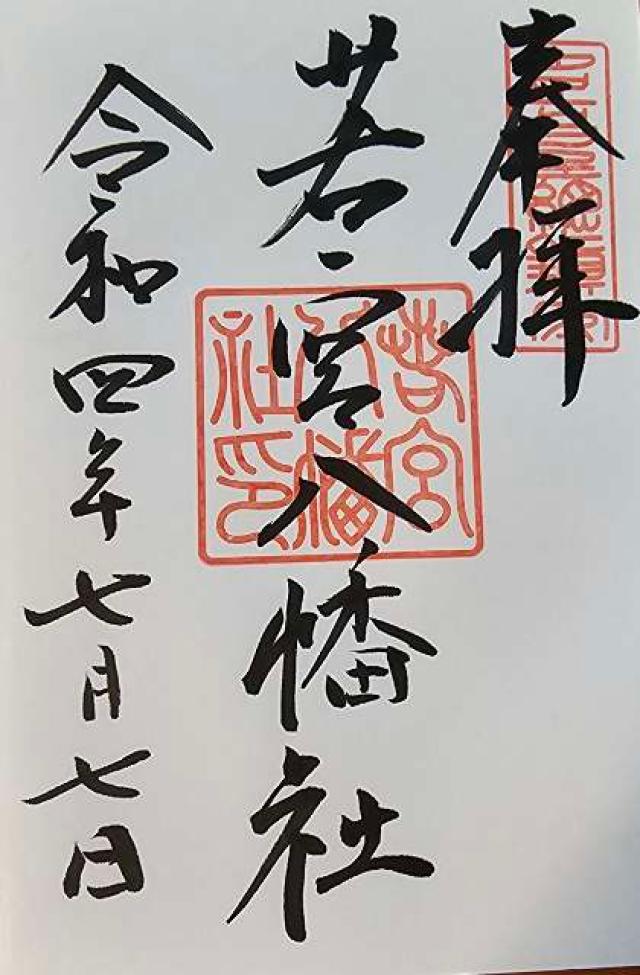 奉拝
若宮八幡社
若宮八幡社印
令和四年七月七日